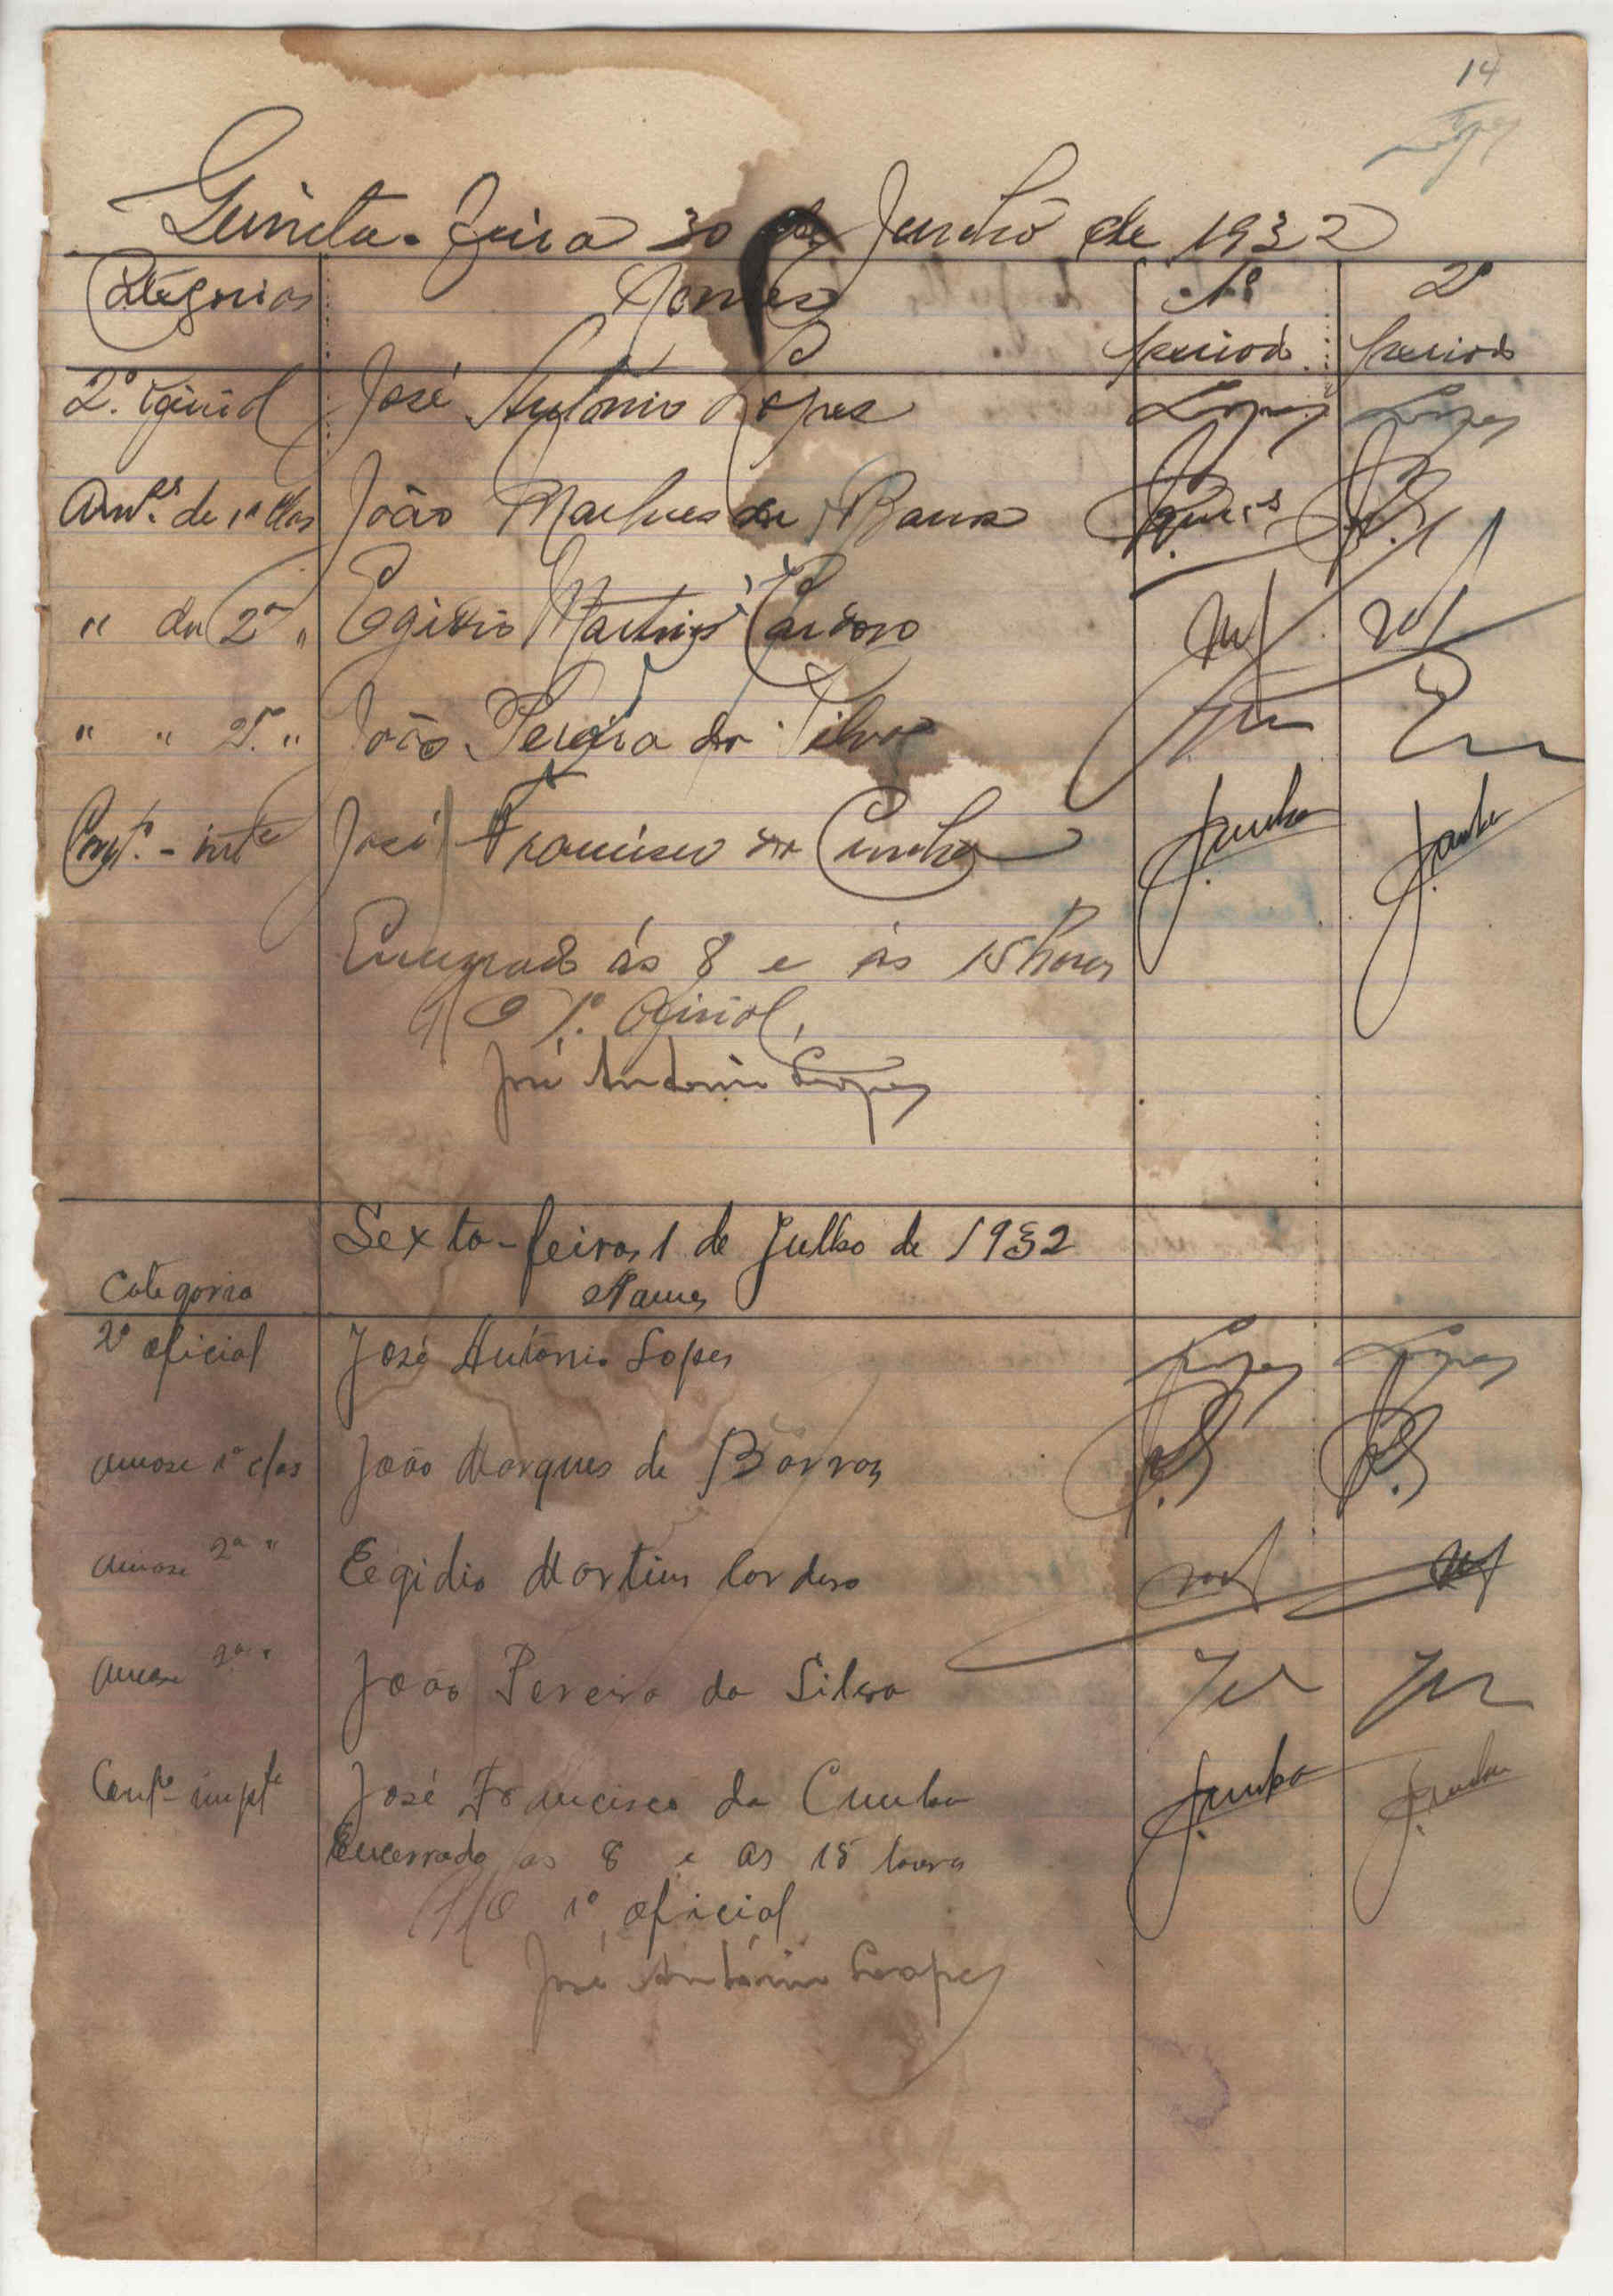 14
Lopes
Quinta-feira 30 de Junho de 1932
Categorias Nomes 1º 2º
period. period.
2º. oficial José António Lopes Lopes Lopes
de 1ª clas João Marques de Barros
" de 2ª " Egidio Martins Cardoso
" " 2ª. " João Pereira da Silva
José Francisco da Cunha JCunha JCunha
Encerrado ás 8 e ás 15 horas
O 1º. oficial,
José António Lopes
Sexta-feira, 1 de Julho de 1932
Categoria Nomes
2º oficial José António Lopes Lopes Lopes
1ª clas João Marques de Barros
2ª " Egidio Martins Cardoso
2ª " João Pereira da Silva
José Francisco da Cunha JCunha JCunha
Encerrado as 8 e as 15 horas
O 1º oficial
José António Lopes